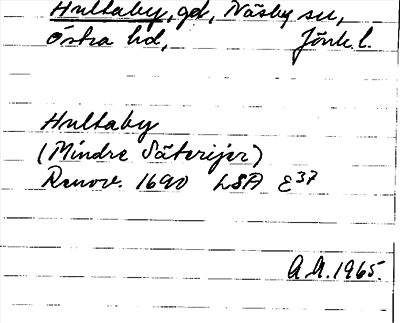 Hultaby, gd, Näsby sn,
Östra hd, Jönk. l.
Hultaby
(Mindre Säterijer)
Renov. 1690 LSA E37
A.A. 1965.